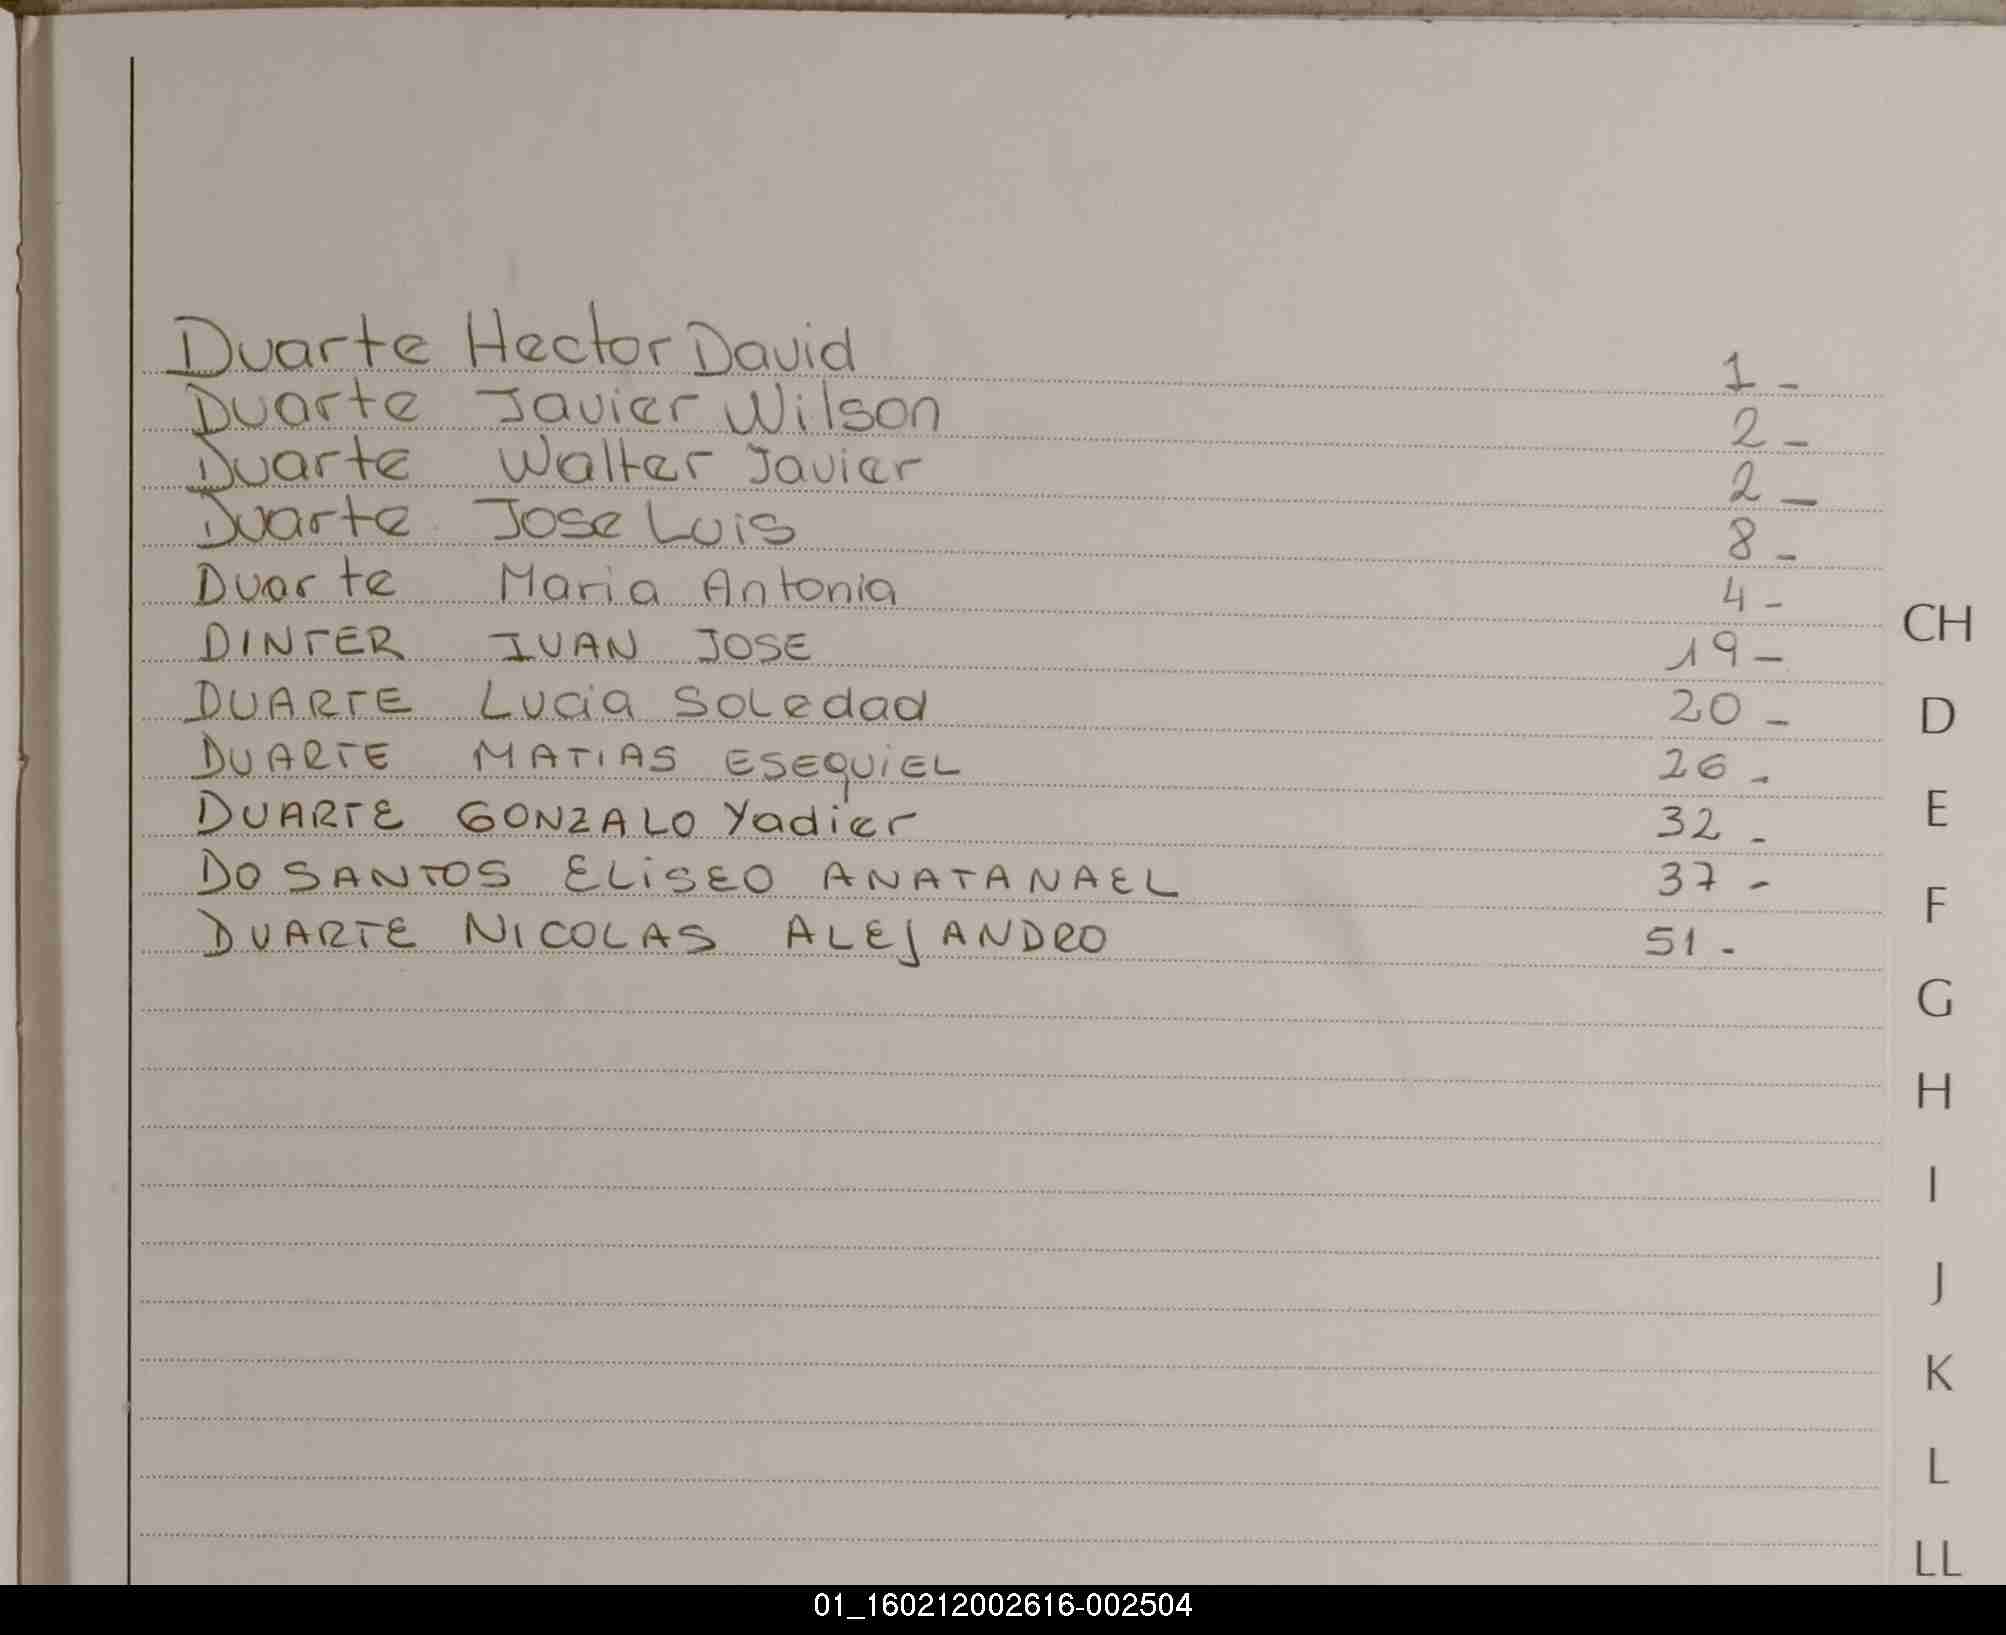 Duarte Hector David 1-
Duarte Javier Wilson 2-
Duarte Walter Javier 2-
Duarte Jose Luis 8-
Duarte Maria Antonia 4-
DINTER IVAN JOSE 19-
DUARTE Lucia Soledad 20-
DUARTE MATIAS ESEQUIEL 26-
DUARTE GONZALO Yadier 32-
DO SANTOS ELISEO ANATANAEL 37-
DUARTE NICOLAS ALEJANDRO 51-
CH
D
E
F
G
H
I
J
K
L
LL
01_160212002616-002504